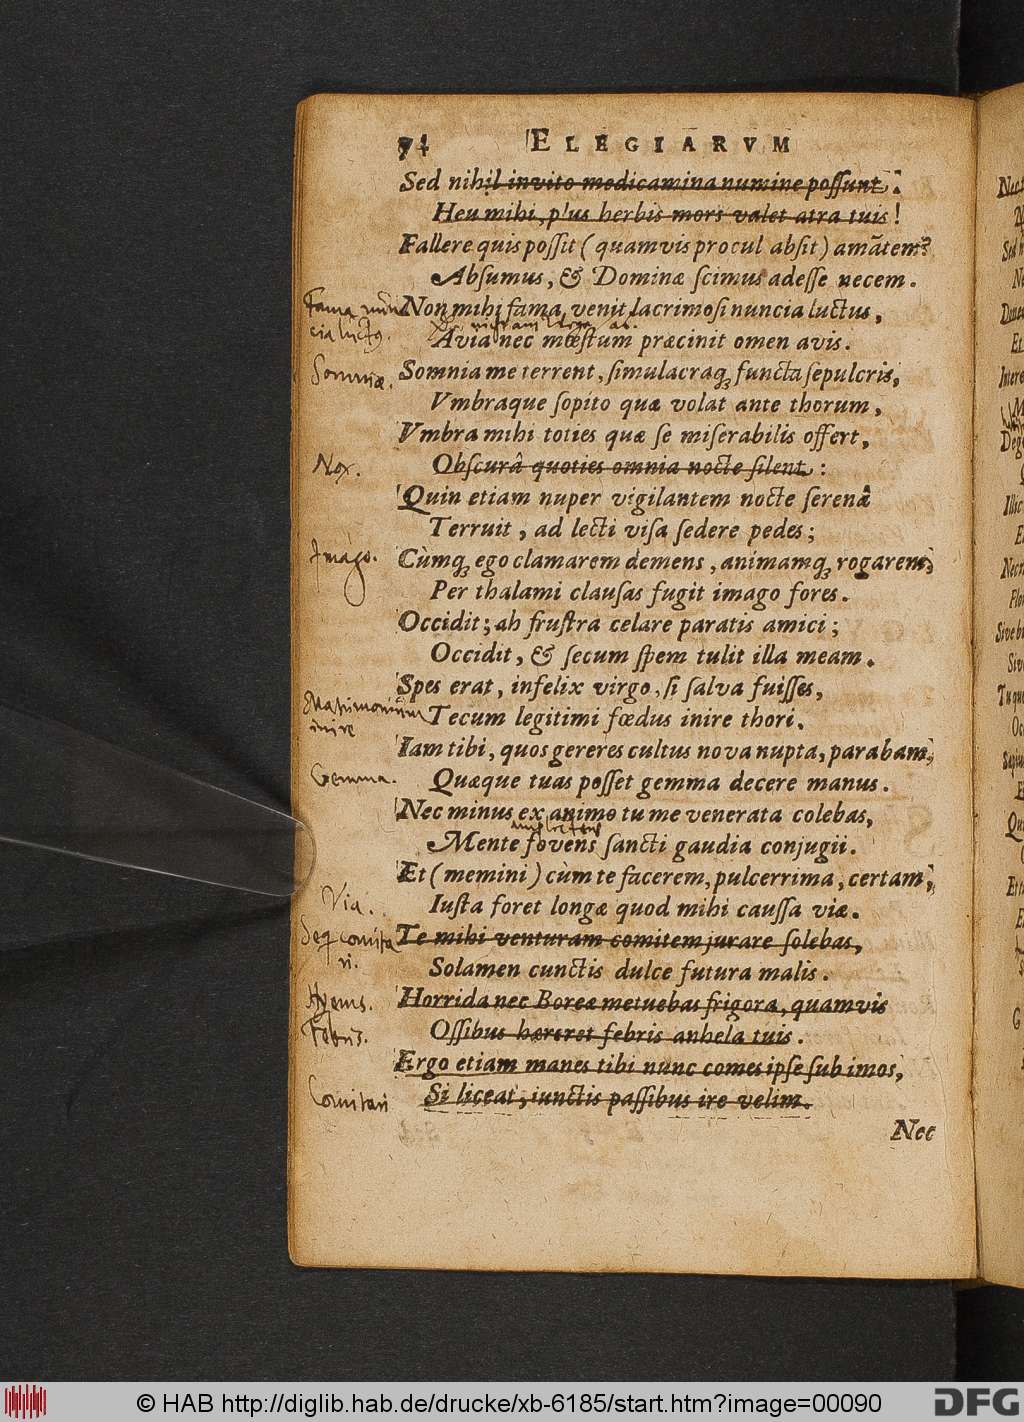 74 ELEGIARVM
Sed nihil invito medicamina numine possunt:
Heu mihi, plus herbis mors valet atra tuis!
Fallere quis possit (quamvis procul absit) amãtem?
Absumus, & Dominæ scimus adesse necem.
Fama nun Non mihi fama venit lacrimosi nuncia luctus,
cia luctꝰ.
Avia nec mœstum præcinit omen avis.
Somniæ. Somnia me terrent, simulacraq; functa sepulcris,
Vmbraque sopito quæ volat ante thorum,
Vmbra mihi toties quæ se miserabilis offert,
Nox. Obscurâ quoties omnia nocte silent:
Quin etiam nuper vigilantem nocte serenâ
Terruit, ad lecti visa sedere pedes;
Imago. Cùmq; ego clamarem demens, animamq; rogarem,
Per thalami clausas fugit imago fores.
Occidit; ah frustra celare paratis amici;
Occidit, & secum spem tulit illa meam.
Spes erat, infelix virgo, si salva fuisses,
Matrimonium Tecum legitimi fœdus inire thori.
inire
Iam tibi, quos gereres cultus nova nupta, parabam,
Gemma. Quæque tuas posset gemma decere manus.
Nec minus ex animo tu me venerata colebas,
Mente fovens sancti gaudia conjugii.
Et (memini) cùm te facerem, pulcerrima, certam,
Via. Iusta foret longæ quod mihi caussa viæ.
Seq comita Te mihi venturam comitem jurare solebas,
ri.
Solamen cunctis dulce futura malis.
Hyems. Horrida nec Boreæ metuebas frigora, quamvis
Febris. Ossibus hæreret febris anhela tuis.
Ergo etiam manes tibi nunc comes ipse sub imos,
Comitari Si liceat, iunctis passibus ire velim.
Nec
© HAB http://diglib.hab.de/drucke/xb-6185/start.htm?image=00090
DFG